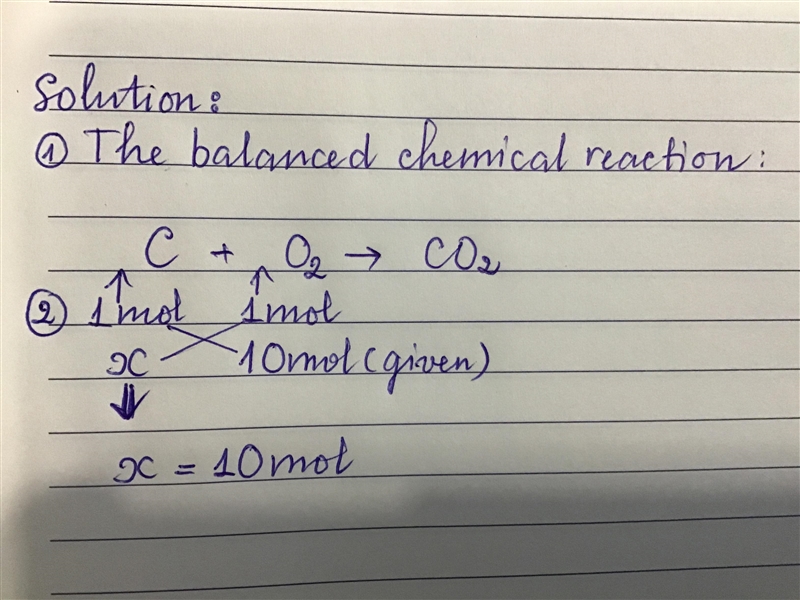 Solution:
① The balanced chemical reaction:
C + O₂ → CO₂
② 1mol 1mol
x 10mol (given)
x = 10mol